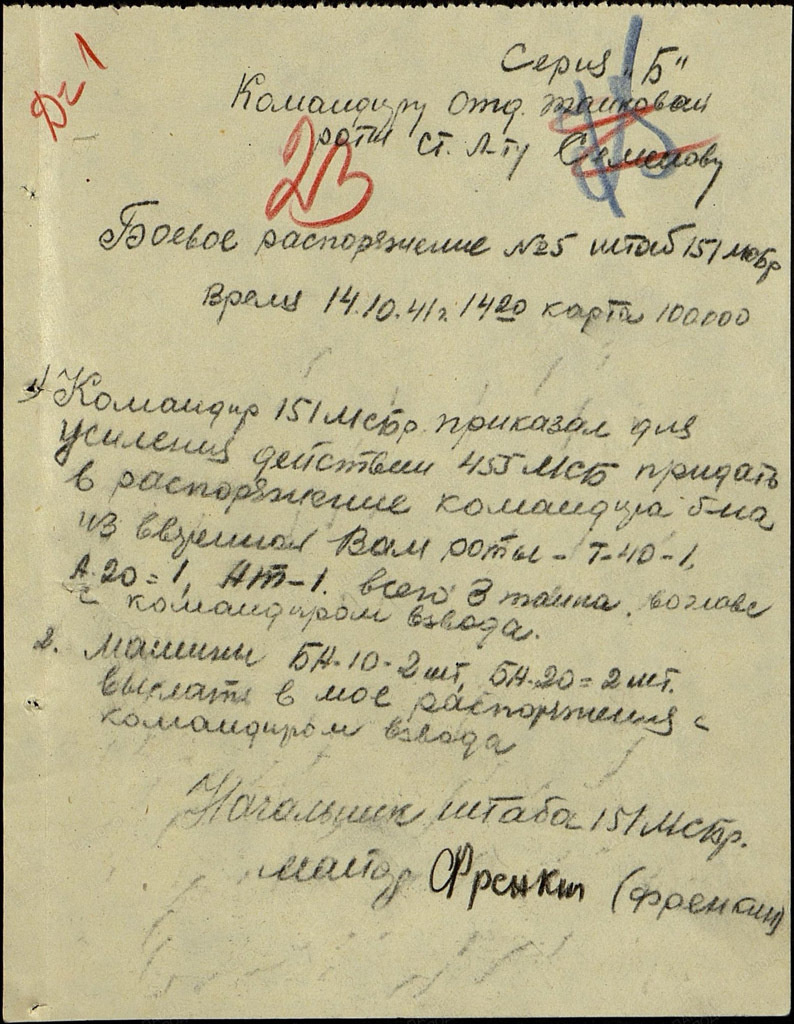 Серия "Б"
Командиру отд. танковой
роты ст. л-ту Семенову
23
Боевое распоряжение №5 штаб 151 мсбр
Время 14.10.41г. 1420 карта 100000
1/ Командир 151 Мсбр приказал для
усиления действии 455 МСБ придать
в распоряжение командира б-на
из ввереннои Вам роты - Т-40-1,
А-20=1, НТ-1. всего 3 танка, во главе
с командиром взвода.
2. Машины БА-10-2 шт, БА-20=2 шт.
выслать в мое распоряжения с
командиром взвода
Начальник штаба 151 Мсбр.
маиор Френкин (Френкин)